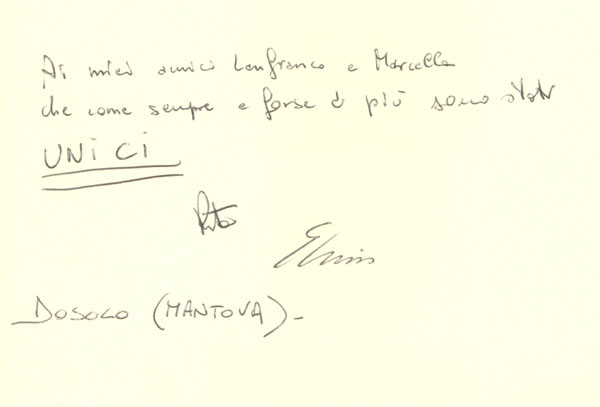 Ai miei amici Lanfranco e Marcella
che come sempre e forse di più sono stati
UNICI
DOSOLO (MANTOVA)-